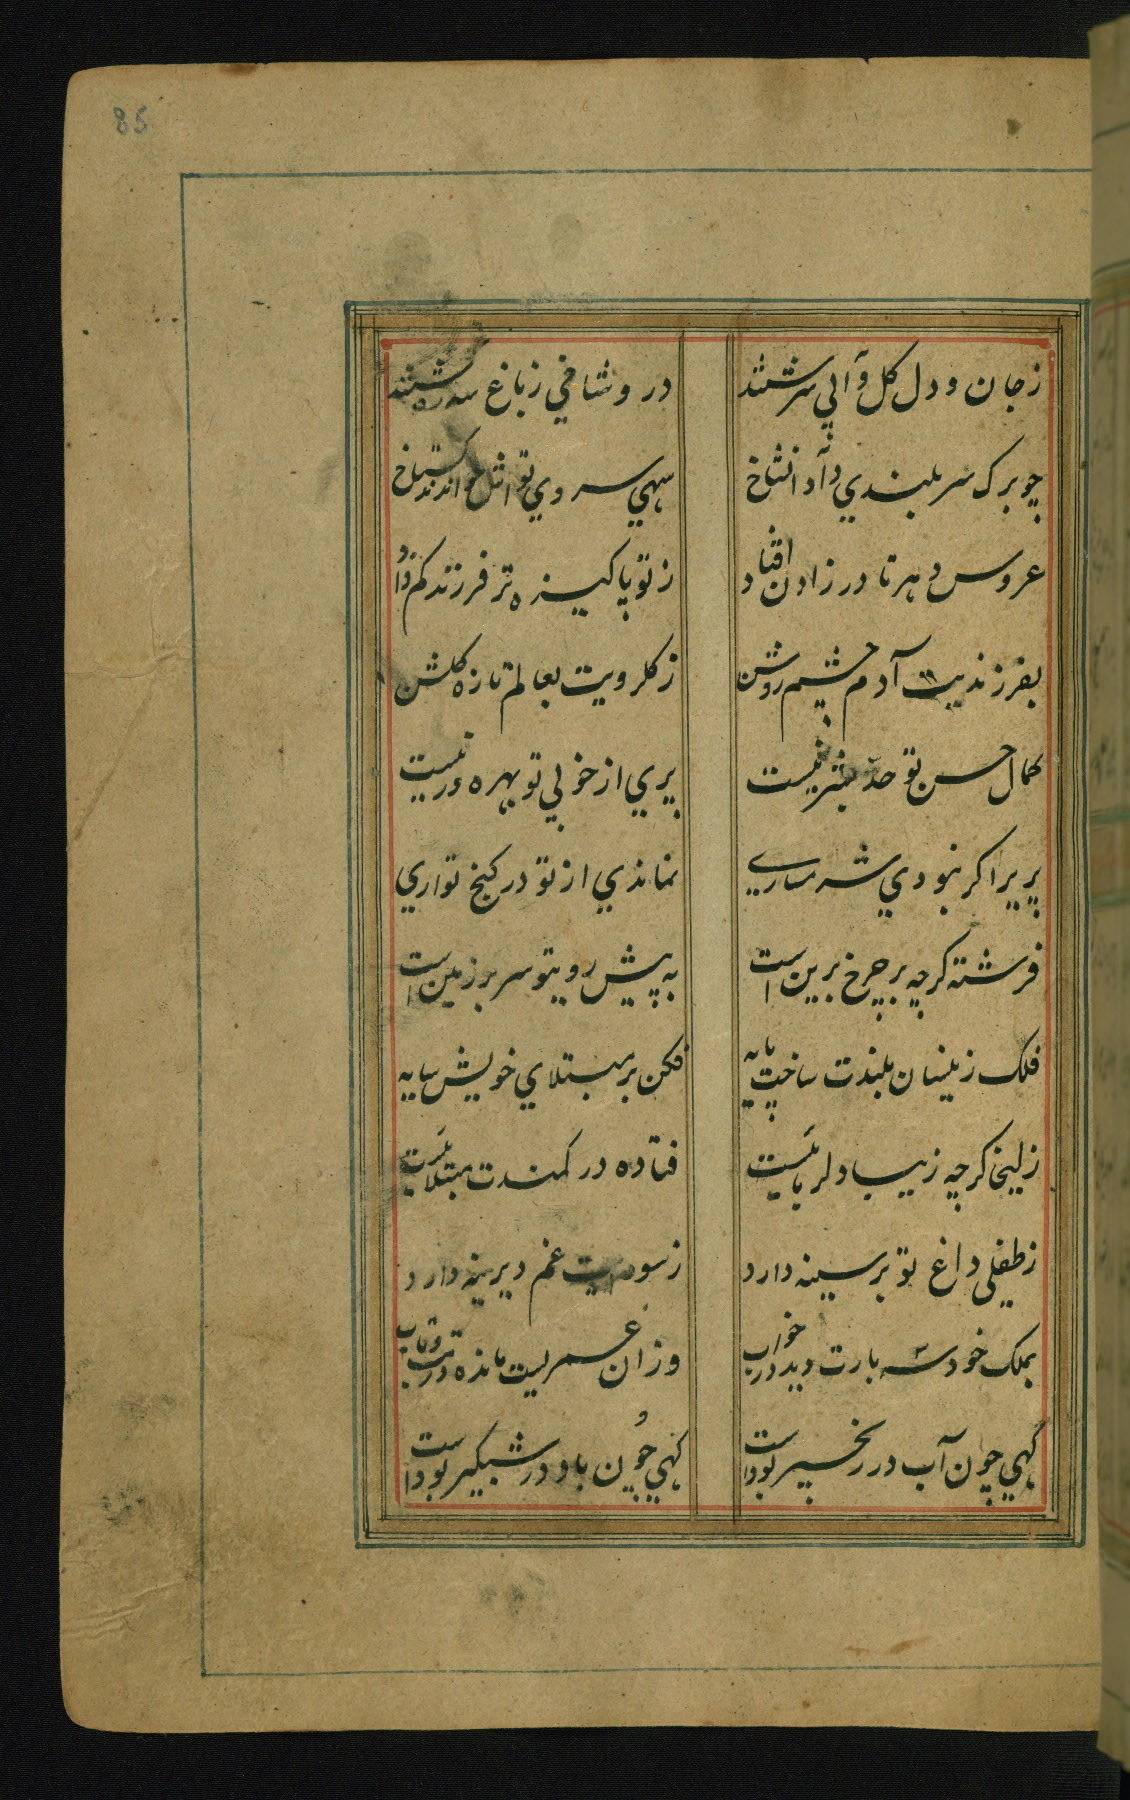 85
زجان و دل گل و آبی سرشتند در و شاخی زباغ سدره کشتند
چو برک سربلندی داد آن شاخ سهی سروی تو اش خواندند کستاخ
عروس دهر تا در زادن افتاد ز تو پاکیزه تر فرزند کم زاد
بفرزندیت آدم چشم روشن ز گلرویت بعالم تازه گلشن
کمال حسن تو حد بشر نیست پری از خوبی تو بهره ور نیست
پریرا کر نبودی شرمساری نماندی از تو در کنج تواری
فرشته کرچه بر چرخ برین است به پیش رویتو سر بر زمین است
فلک زینسان بلندت ساخت پایه فکن بر مبتلای خویش سایه
زلیخا کرچه زیبا دلربائیست فتاده در کمندت مبتلائیست
ز طفلی داغ تو بر سینه دارد ز سودایت غم دیرینه دارد
بملک خود سه بارت دید در خواب وزان عمریست مانده در تب و تاب
کهی چون آب در زنجیر بود است کهی چون باد در شبکیر بود است